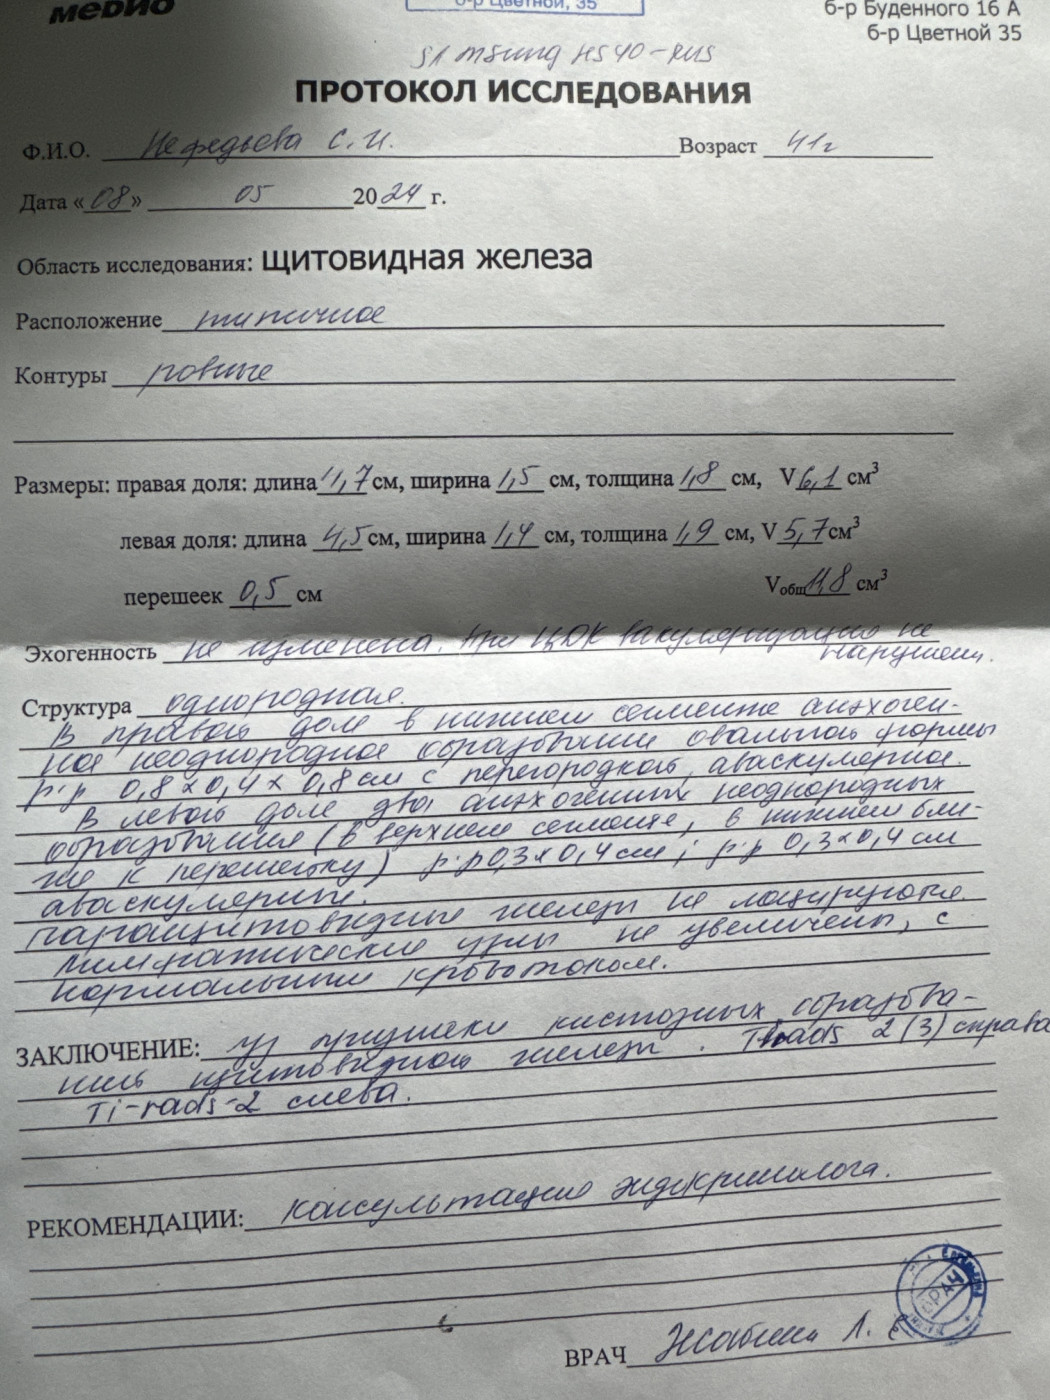 медио
б-р Цветной, 35
б-р Буденного 16 А
б-р Цветной 35
SAMSUNG HS40-RUS
ПРОТОКОЛ ИССЛЕДОВАНИЯ
Ф.И.О. Нефедьева С.И. Возраст 41г
Дата «08» 05 2024 г.
Область исследования: ЩИТОВИДНАЯ ЖЕЛЕЗА
Расположение типичное
Контуры ровные
Размеры: правая доля: длина 4,7 см, ширина 1,5 см, толщина 1,8 см, V 6,1 см³
левая доля: длина 4,5 см, ширина 1,4 см, толщина 1,9 см, V 5,7 см³
перешеек 0,5 см Vобщ 11,8 см³
Эхогенность не изменена. При ЦДК васкуляризация не
нарушена.
Структура однородная.
В правой доле в нижнем сегменте анэхоген-
ное неоднородное образование овальной формы
р-р 0,8х0,4х0,8 см с перегородкой, аваскулярное.
В левой доле два анэхогенных неоднородных
образования (в верхнем сегменте, в нижнем бли-
же к перешейку) р-р 0,3х0,4 см; р-р 0,3х0,4 см
аваскулярные.
Паращитовидные железы не лоцируются.
Лимфатические узлы не увеличены, с
нормальным кровотоком.
ЗАКЛЮЧЕНИЕ: уз признаки кистозных образова-
ний щитовидной железы. Tirads 2 (3) справа
Ti-rads-2 слева.
РЕКОМЕНДАЦИИ: консультация эндокринолога.
ВРАЧ
ВРАЧ